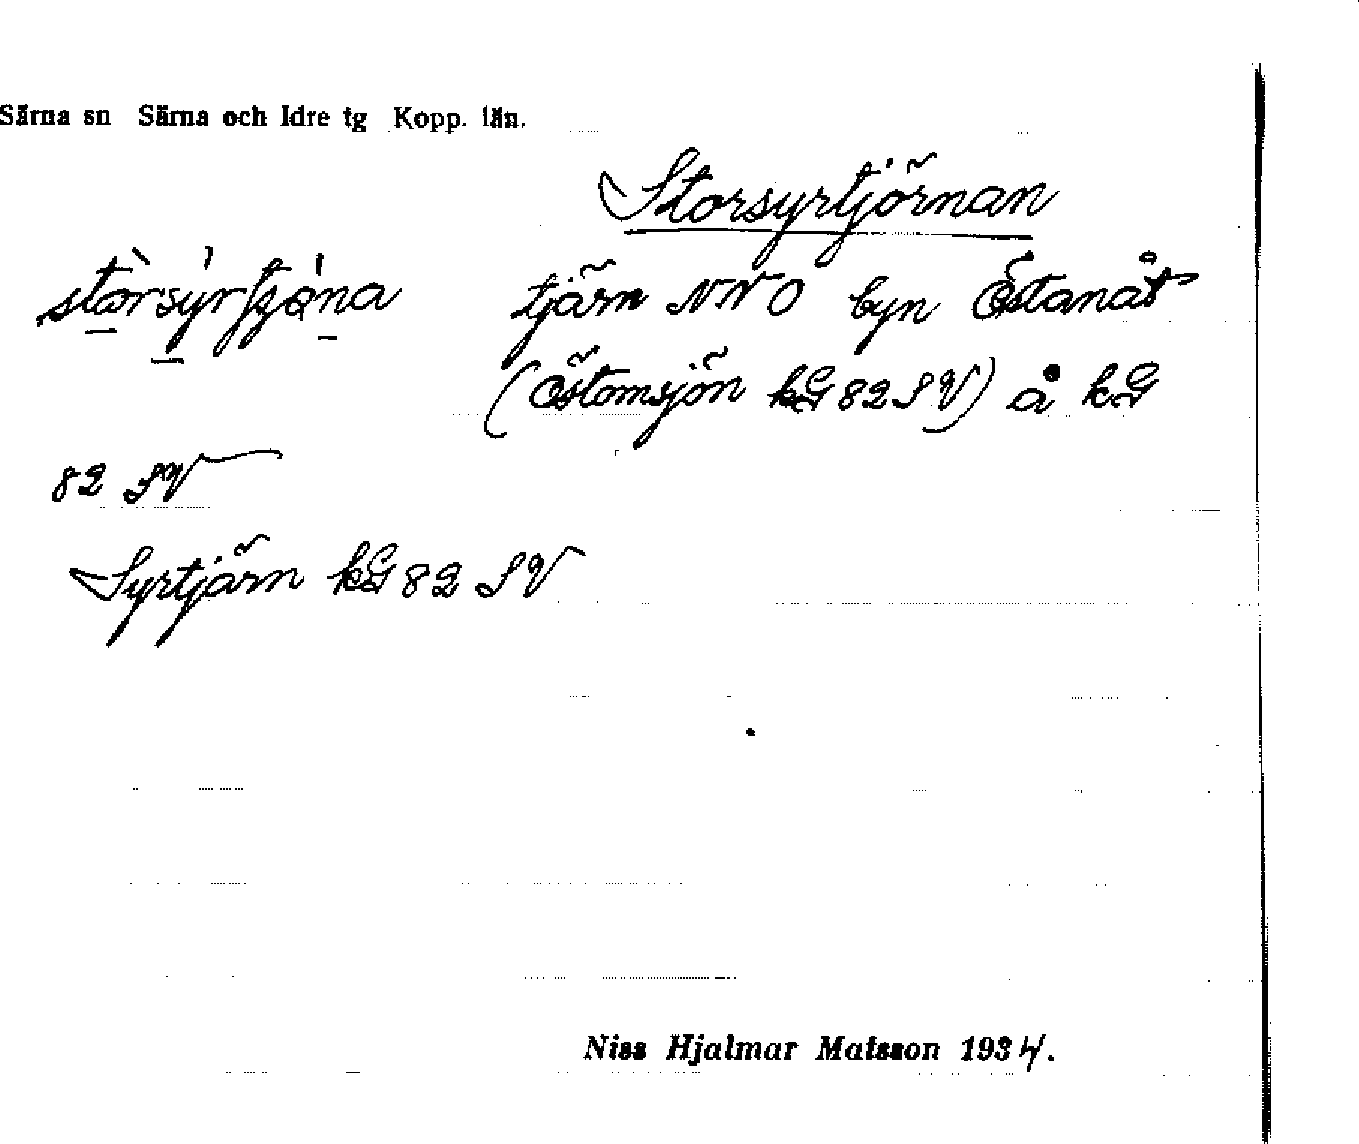 Särna sn Särna och Idre tg Kopp. län.
Storsyrtjörnan
tjärn NNO byn Östanåt
(Östomsjön kG 82 SV) å kG
82 SV
Syrtjärn kG 82 SV
Niss Hjalmar Matsson 1934.